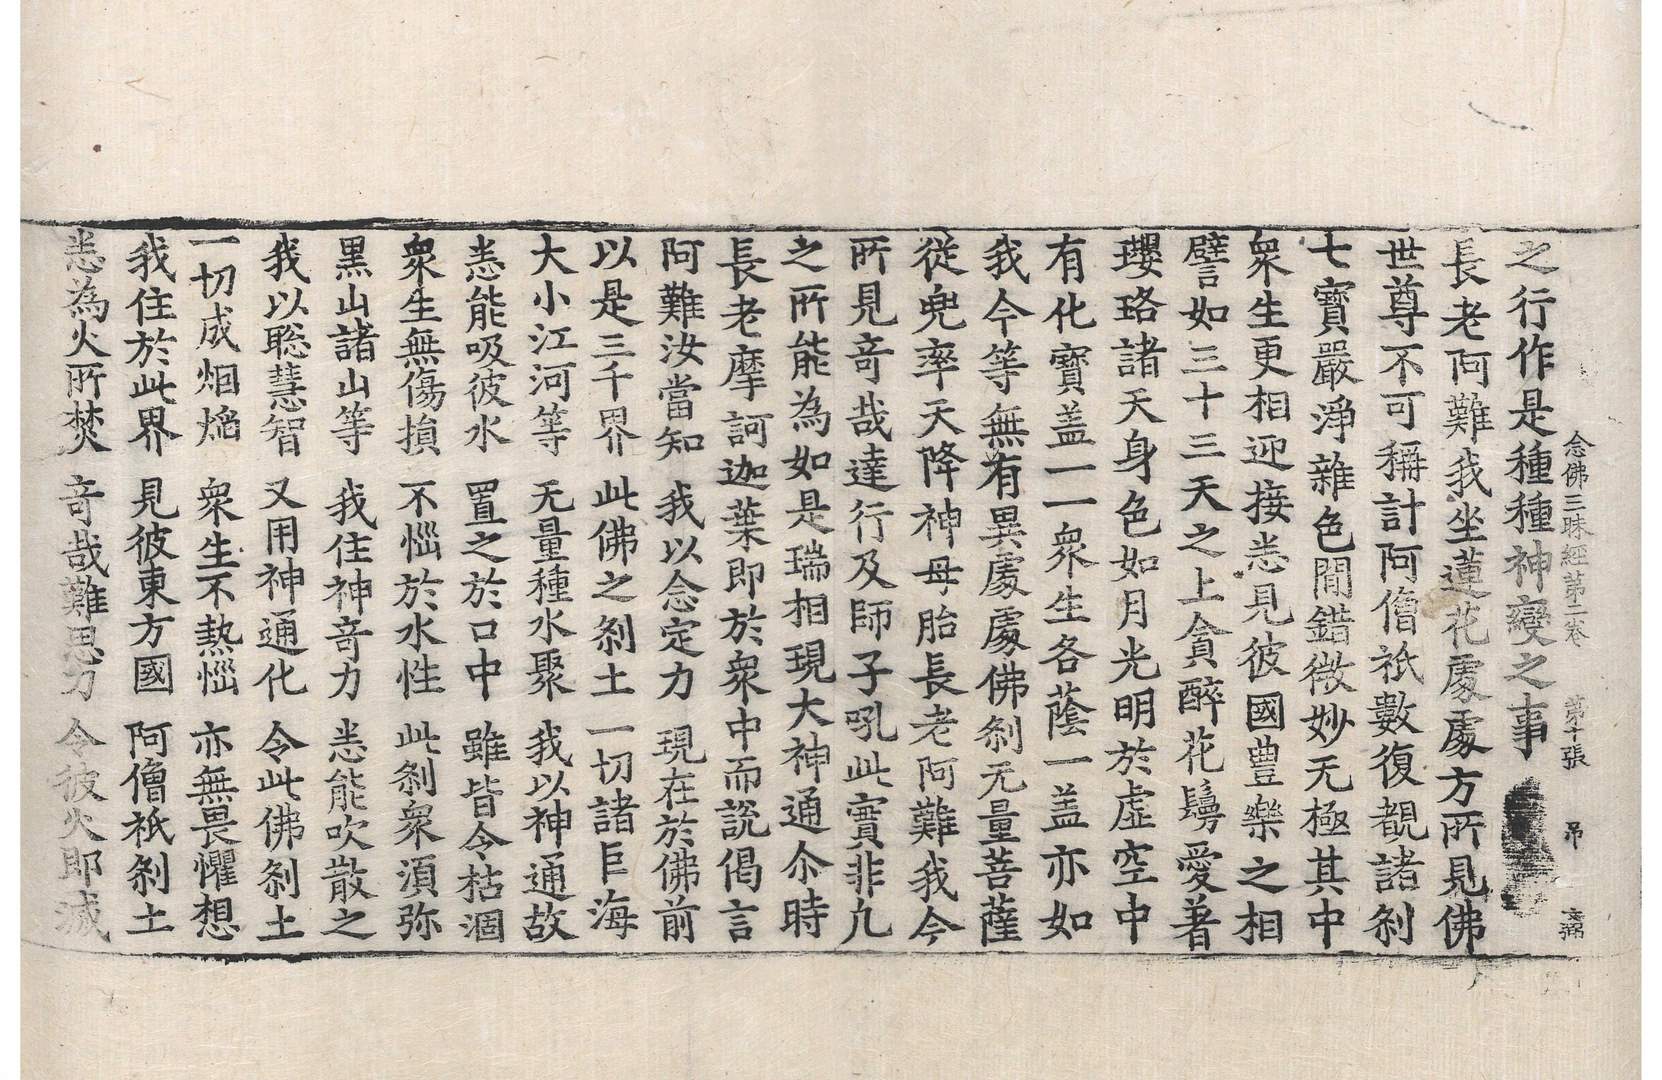 念佛三昧經第二卷 第十張 吊
之行作是種種神變之事
長老阿難我坐蓮花處處方所見佛
世尊不可稱計阿僧祇數復覩諸刹
七寶嚴淨雜色間錯微妙无極其中
衆生更相迎接恚見彼國豊樂之相
譬如三十三天之上貪醉花鬘愛著
瓔珞諸天身色如月光明於虛空中
有化寶盖一一衆生各蔭一盖亦如
我今等無有異處處佛刹无量菩薩
從兜率天降神母胎長老阿難我今
所見竒哉達行及師子吼此實非凡
之所能為如是瑞相現大神通尒時
長老摩訶迦葉即於衆中而說偈言
阿難汝當知 我以念定力 現在於佛前
以是三千界 此佛之刹土 一切諸巨海
大小江河等 无量種水聚 我以神通故
恚能吸彼水 置之於口中 雖皆令枯涸
衆生無傷損 不惱於水性 此刹衆湏弥
黒山諸山等 我住神竒力 恚能吹散之
我以聡慧智 又用神通化 令此佛刹土
一切成烟燄 衆生不熱惱 亦無畏懼想
我住於此界 見彼東方國 阿僧祇刹土
恚為火所焚 竒哉難思力 令彼火即滅